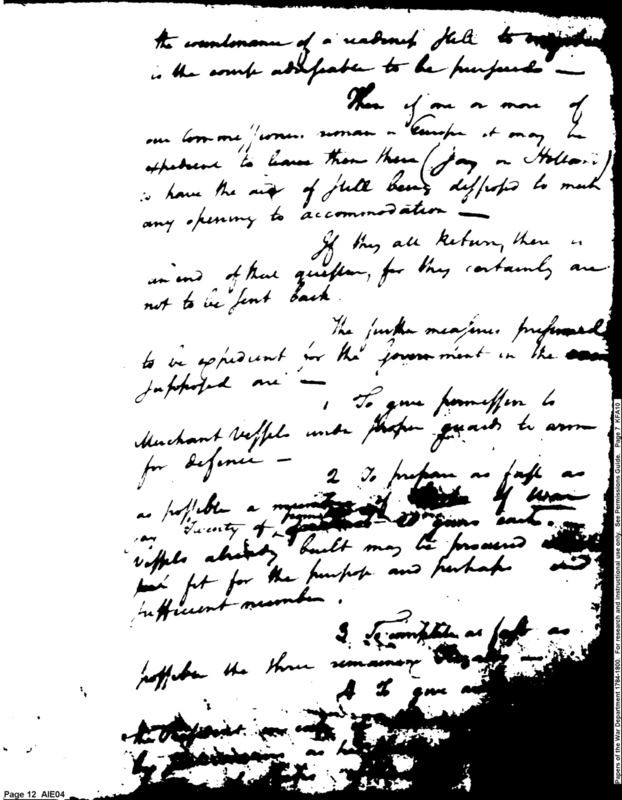 the countenance of a readiness still to
is the course adviseable to be pursued —
Then if one or more of
our Commissioners remain in Europe it may be
expedient to leave them there (say in Holland)
to have the air of still being disposed to meet
any opening to accommodation —
If they all Return, there is
an end of that question, for they certainly are
not to be sent back.
The further measures
to be expedient for the Government in the
supposed are —
1 To give permission to
Merchant Vessels under proper guards to arm
for defence —
2 To prepare as fast as
as possible a number of of War
say Twenty of guns each.
Vessels already built may be procured
fit for the purpose and perhaps
sufficient number.
3 To complete as fast as
possible the three remaining Frigates —
4 To give
the President in
by as he
Page 12 AIE04
Papers of the War Department 1784-1800. For research and instructional use only. See Permissions Guide. Page 7 KFA10